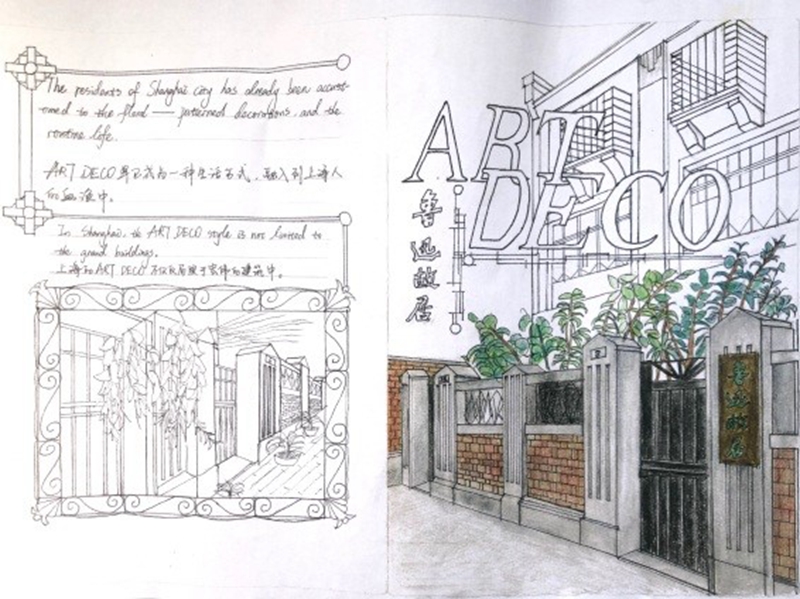 The residents of Shanghai city has already been accust-
omed to the floral — patterned decorations, and the
routine life.
ART DECO早已成为一种生活方式，融入到上海人
的血液中。
In Shanghai, the ART DECO style is not limited to
the grand buildings.
上海的ART DECO 不仅仅局限于宏伟的建筑中。
ART
DECO
鲁迅故居
鲁迅故居